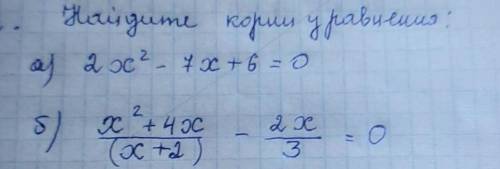 Найдите корни уравнения:
а) 2x² - 7x + 6 = 0
б) (x² + 4x)/((x+2)) - 2x/3 = 0